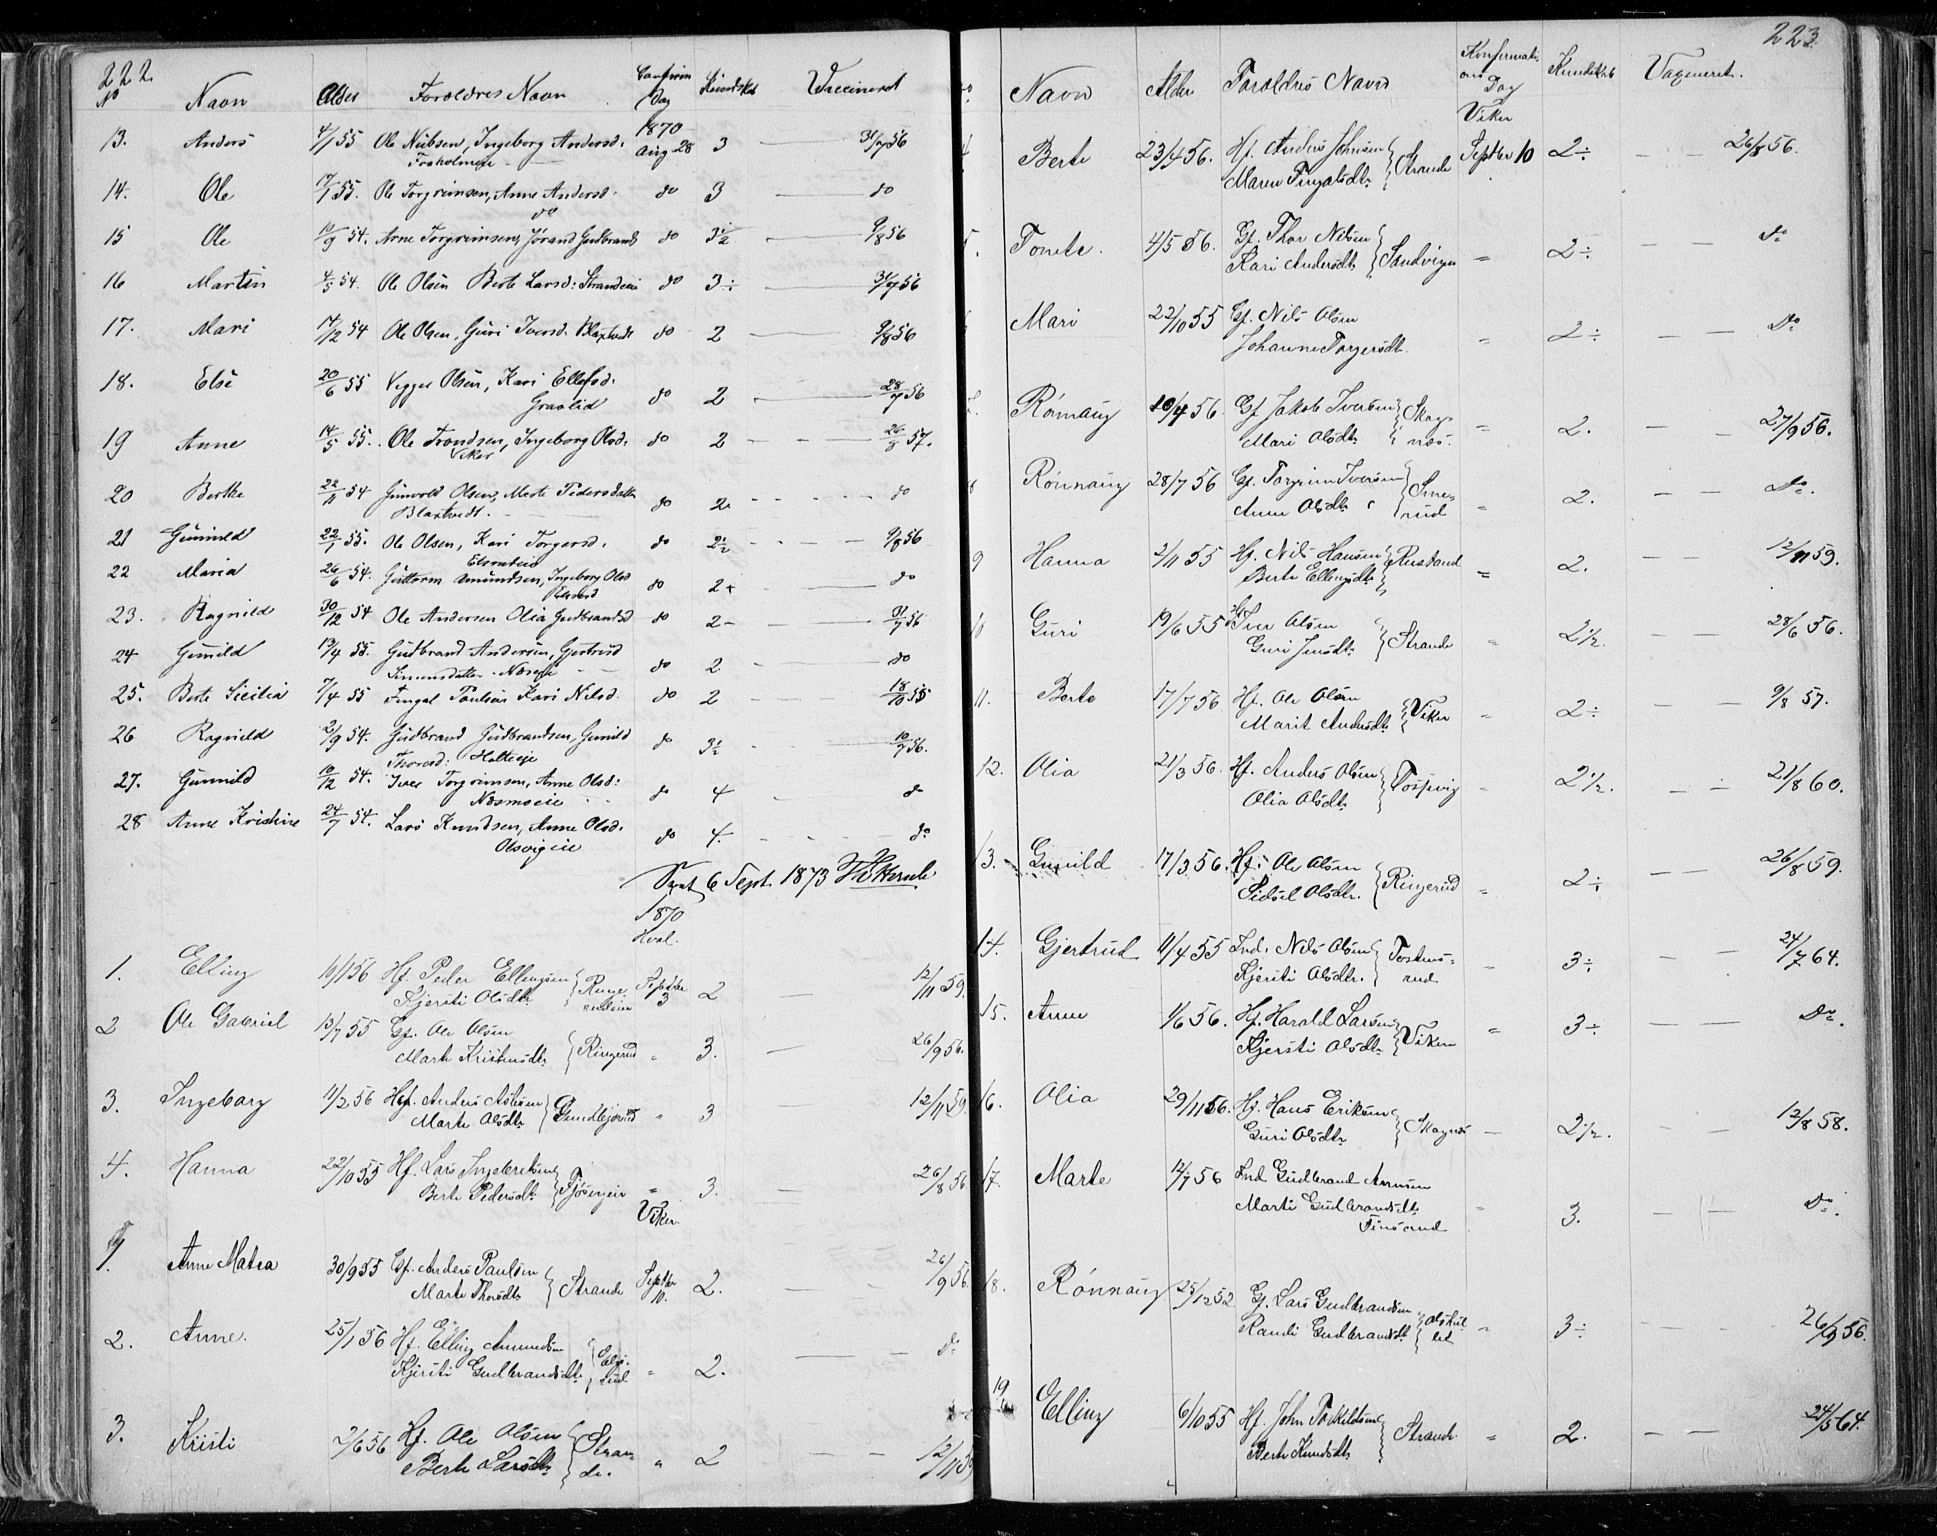 222.
No Navn Alder Forældres Navn Confirm Dag Kundskab Vaccineret
1870
13. Anders 4/1 55 Ole Nubsen, Ingeborg Andersd: Aug 28 3 — 31/7 56
14. Ole 17/1 55. Ole Torgrimsen, Anne Andersd: do 3 — do
do
15 Ole 19/9 54. Arne Torgrimsen, Jørand Gudbrands do 3½ — 9/8 56
16 Martin 4/5 54. Ole Olsen Berte Larsd: Strandeie do 3÷ — 31/7 56
17. Mari 17/12 54 Ole Olsen, Guri Iversd. do 2 — 9/8 56
18. Else 20/6 55 Vegger Olsen, Kari Ellefsd: do 2 — 28/7 56
Graalid
19 Anne 14/5 55. Ole Trondsen, Ingeborg Olsd: do 2 — 26/8 57.
Viker
20 Berthe 22/11 54 Gunvold Olsen, Marte Pedersdatter do 2. — do
21 Gunnild 22/1 55. Ole Olsen, Kari Torgersd. do 2½ — 9/8 56
22 Maria 26/6 54. Guttorm Amundsen, Ingeborg Olsd do 2+ — do
23. Ragnild 30/12 54 Ole Andersen Olia Gudbrandsd do 2- — 31/7 56
24 Gunild 13/4 55. Gudbrand Andersen, Gjertrud do 2. — do
Simensdatter
25. Berte Sicilia 7/4 55 Fingal Paulsen Kari Nilsd. do 2 — 18/10 55
26 Ragnild 2/9 54. Gudbrand Gudbrandsen, Gunild do 3½ 10/7 56.
Thoresd: Holteeie
27. Gunnild 10/12 54. Iver Torgrimsen, Anne Olsd: do 4 — do
Næsmoeie
28 Anne Kristine 24/7 54. Lars Knudsen, Anne Olsd: do 4. — do
Olsvigeie
6 Sept. 1873
1870
Hval.
1. Elling 16/1 56 Hf Peder Ellingsen Septbr 3 2 — 12/11 59.
Kjersti Olsdtr
2 Ole Gabriel 13/7 55 Gf. Ole Olsen Ringerud " 3. — 26/9 56.
Marte Kristensdtr
3. Ingeborg 11/2 56 Hf. Anders Aslesen Gundbjørnrud " 3 — 12/11 59.
Marte Olsdtr
4. Hanna 22/10 55 Hf. Lars Ingebretsen " 3. — 26/8 56
Berte Pedersdtr
Viker.
1. Anne Matea 30/9 55 Gf. Anders Paulsen Strande Septbr 10. 2. — 26/9 56.
Marte Thorsdtr
2. Anne. 25/1 56 Hf. Elling Amundsen " 2. — Do
Kjersti Gudbrandsdtr
3. Kristi 2/6 56 Hf. Ole Olsen Strande. " 2 — 12/11 59
Berte Larsdtr
223.
Navn Alder Forældres Navn Konfirmations Dag Kundskab Vagineret.
Viker
4 Berte 23/4 56. Hf. Anders Johnsen Strande Septbr 10 2÷ — 26/8 56.
Maren Fingalsdtr
5. Tomte. 4/5 56. Gf. Thor Nilsen Sandvigen " 2÷ — Do
Kari Andersdtr
Mari 22/10 55 Gf. Nils Olsen " 2÷ — Do
Johanne Torgersdtr.
Rønnaug 10/4 56. Gf Jakob Iversen Skagnæs. " 2. — 27/9 56.
Mari Olsdtr
8 Rønnaug 28/7 56 Gf. Torgrim Iversen Smerud " 2. — Do.
Anne Olsdtr
9 Hanna 2/11 55 Hf. Nils Hansen Rustand " 2. — 12/11 59.
Berte Ellingsdtr
10 Guri 19/6 55 Iver Olsen Strande " 2½. 28/6 56.
Guri Jensdtr
11. Berte 17/7 56 Hf. Ole Olsen Viker " 2÷ — 9/8 57.
Marit Andersdtr
12. Olia 21/3 56. Hf. Anders Olsen " 2½. — 21/8 60.
Olia Olsdtr
13. Gunild 17/3 56. Hf. Ole Olsen Ringerud " 2÷ — 26/8 59.
Sidsel Olsdtr.
14. Gjertrud 11/4 55 Ind. Nils Olsen " 3÷ — 24/7 64.
Kjersti Olsdtr.
15. Anne 1/6 56. Hf. Harald Larsen Viken " 3÷ — Do.
Kjersti Olsdtr
16. Olia 29/11 56. Hf. Hans Eriksen Skagnæs — 2½. — 12/8 58.
Guri Olsdtr
17 Marte 12/7 56 Ind Gudbrand Arnesen " 3. — Do.
Marte Gudbrandsdtr
18. Rønnaug 25/12 52 Gf. Lars Gudbrandsen " 3÷ — 26/9 56.
Randi Gudbrandsdtr
19 Elling 6/10 55 Hf. John Torkildsen Strande " 2. — 24/5 64.
Berte Knudsdtr